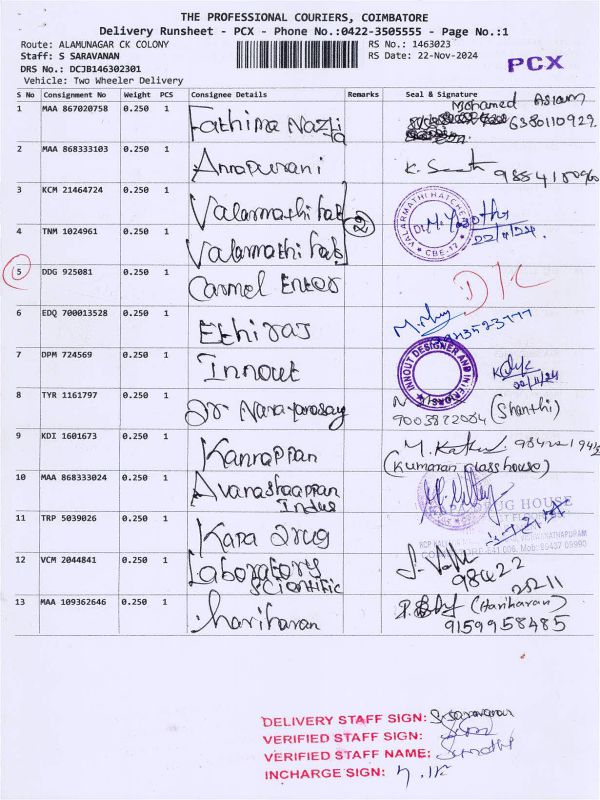 THE PROFESSIONAL COURIERS, COIMBATORE
Delivery Runsheet - PCX - Phone No.:0422-3505555 - Page No.:1
Route: ALAMUNAGAR CK COLONY
RS No.: 1463023
Staff: S SARAVANAN
RS Date: 22-Nov-2024
DRS No.: DCJB146302301
PCX
Vehicle: Two Wheeler Delivery
S No Consignment No Weight PCS Consignee Details Remarks Seal & Signature
1 MAA 867020758 0.250 1 Fathima Mohamed Aslam
6380110929
2 MAA 868333103 0.250 1 Annapurani
3 KCM 21464724 0.250 1 Valarmathi hat
VALARMATHI HATCHE
CBE-12
4 TNM 1024961 0.250 1 Valarmathi hat 2
5 DDG 925081 0.250 1 Carmel Enter D/C
6 EDQ 700013528 0.250 1 Ethiraj
7 DPM 724569 0.250 1 Innout
INNOUT DESIGNER AND INTERIORS
22/11/24
8 TYR 1161797 0.250 1 Dr Narayanasay (Shanthi)
9003822084
9 KDI 1601673 0.250 1 Kannappan
(Kumaran glass house)
10 MAA 868333024 0.250 1 Avarashaappan
Indus
DRUG HOUSE
11 TRP 5039026 0.250 1 Kapa Drug
641 006. Mob: 99437 09990
12 VCM 2044841 0.250 1 Laboratory
Scientific
98422
25211
13 MAA 109362646 0.250 1 hariharan (Hariharan)
9159958485
DELIVERY STAFF SIGN: S. Saravanan
VERIFIED STAFF SIGN:
VERIFIED STAFF NAME:
INCHARGE SIGN: